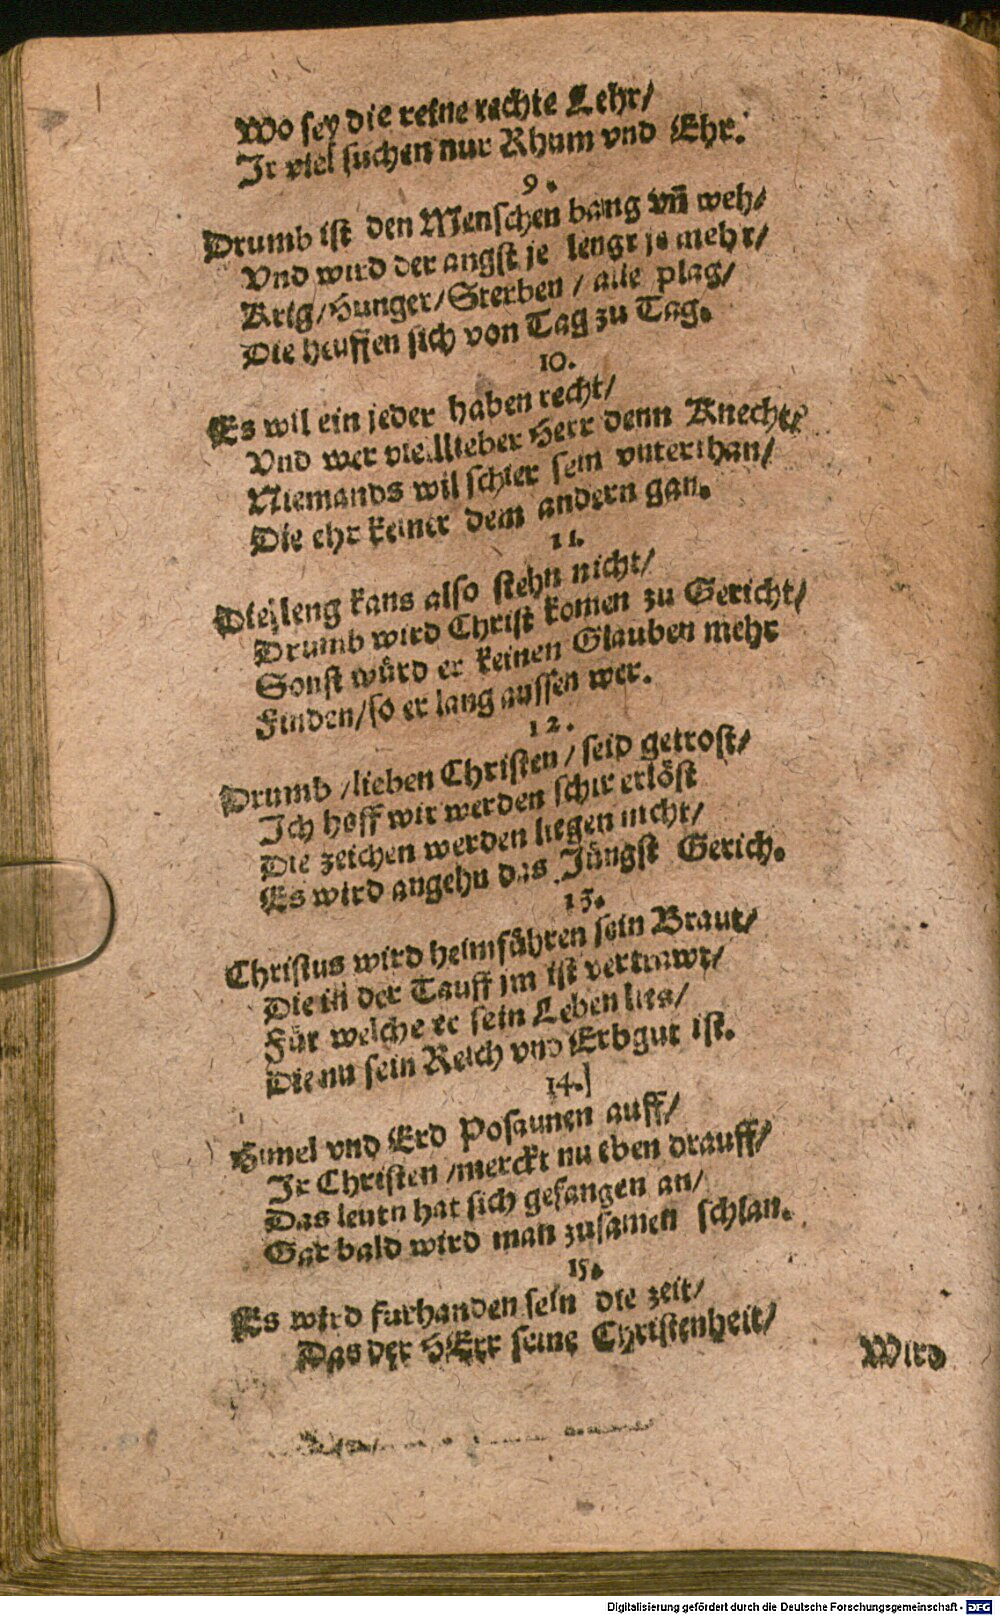 Wo sey die reine rechte Lehr/
Ir viel suchen nur Rhum vnd Ehr.
9.
Drumb ist den Menschen bang vñ weh/
Vnd wird der angst je lengr je mehr/
Krig/Hunger/Sterben/ alle plag/
Die heuffen sich von Tag zu Tag.
10.
Es wil ein jeder haben recht/
Vnd wer viel lieber Herr denn Knecht/
Niemands wil schier sein vnterthan/
Die ehr keiner dem andern gan.
11.
Die leng kans also stehn nicht/
Drumb wird Christ komen zu Gericht/
Sonst würd er keinen Glauben mehr
Finden/so er lang aussen wer.
12.
Drumb /lieben Christen/ seid getrost/
Ich hoff wir werden schir erlöst
Die zeichen werden liegen nicht/
Es wird angehn das Jüngst Gerich.
13.
Christus wird heimführen sein Braut/
Die in der Tauff jm ist vertrawt/
Für welche er sein Leben lies/
Die nu sein Reich vnd Erbgut ist.
14.
Himel vnd Erd Posaunen auff/
Ir Christen /merckt nu eben drauff/
Das leutn hat sich gefangen an/
Gar bald wird man zusamen schlan.
15.
Es wird furhanden sein die zeit/
Das der HErr seine Christenheit/
Wird
Digitalisierung gefördert durch die Deutsche Forschungsgemeinschaft - DFG